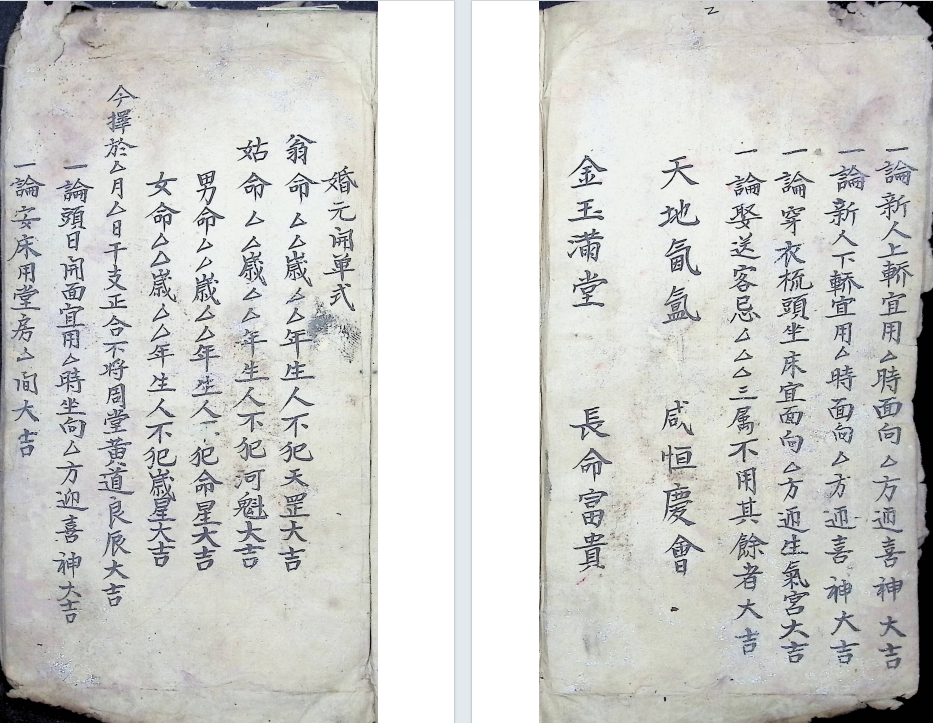 婚元開单式
翁命厶厶歲厶厶年生人不犯天罡大吉
姑命厶厶歲厶厶年生人不犯河魁大吉
男命厶厶歲厶厶年生人不犯命星大吉
女命厶厶歲厶厶年生人不犯歲星大吉
今擇於厶月厶日干支正合不將周堂黄道良辰大吉
一論頭日開面宜用厶時坐向厶方迎喜神大吉
一論安床用堂房厶间大吉
一論新人上轎宜用厶時面向厶方迊喜神大吉
一論新人下轎宜用厶時面向厶方迊喜神大吉
一論穿衣梳頭坐床宜面向厶方迊生氣宮大吉
一論娶送客忌厶厶厶三属不用其餘者大吉
天地氤氲 咸恒慶會
金玉滿堂 長命富貴